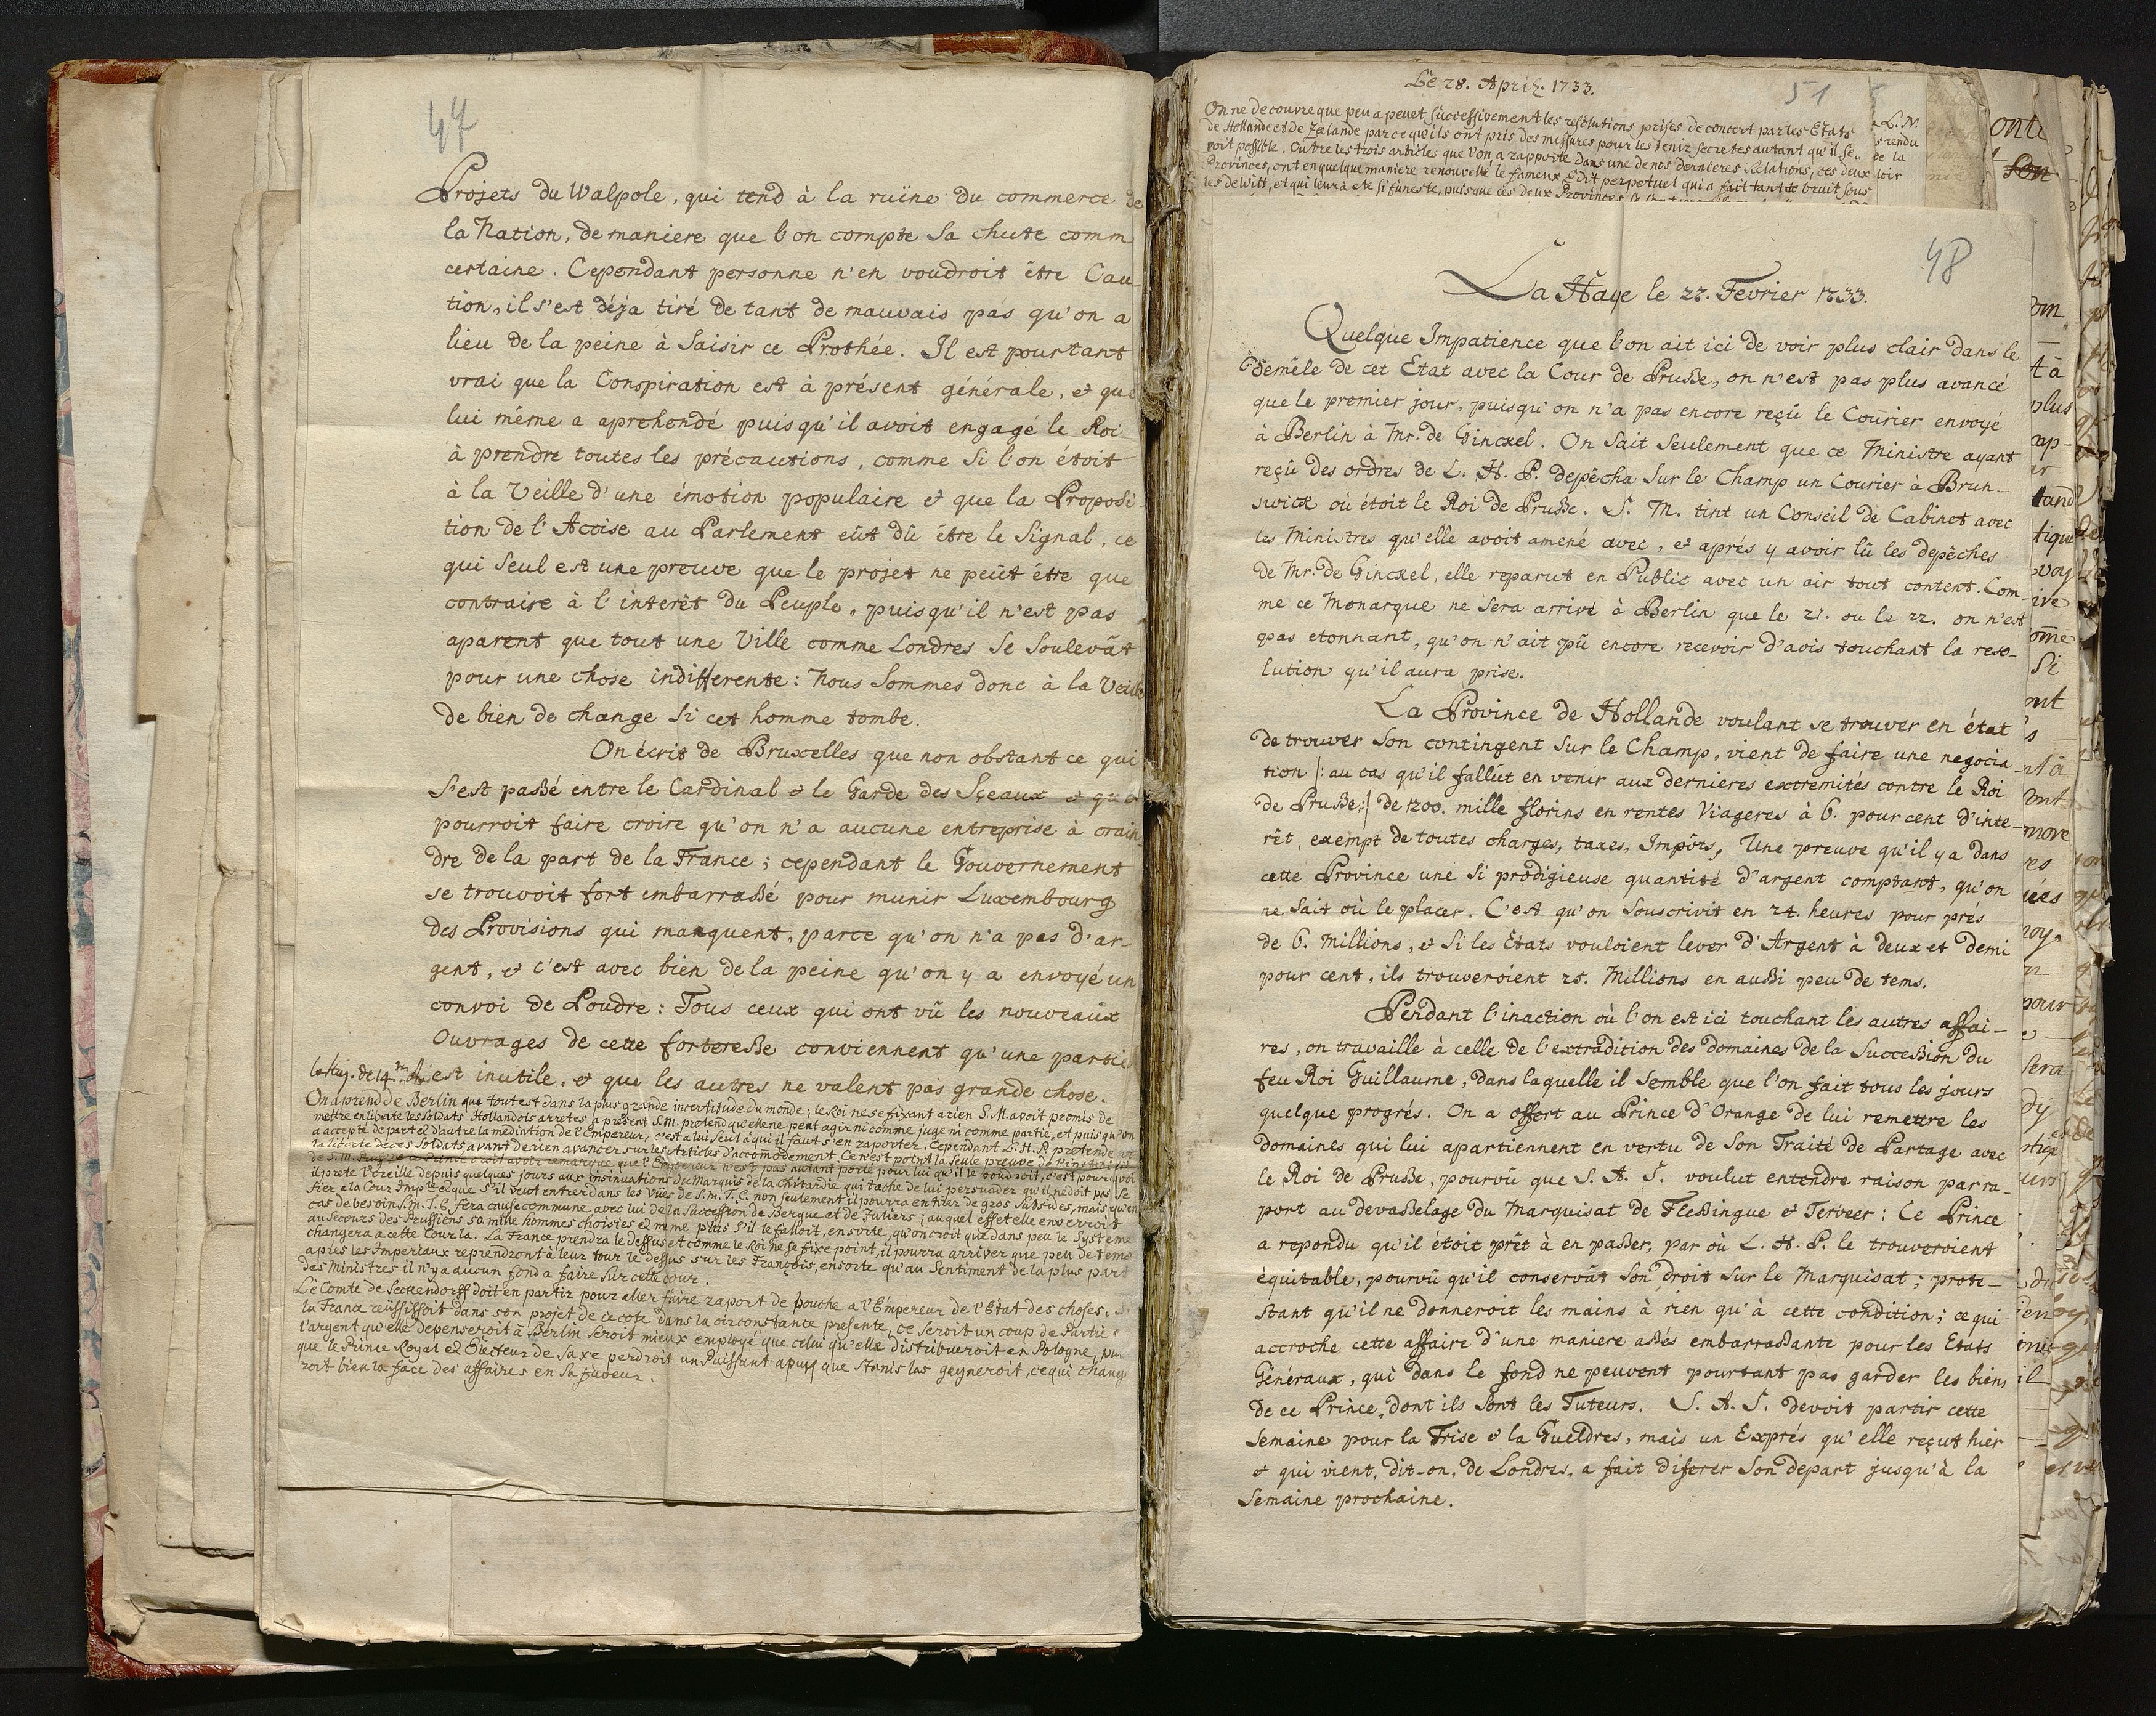 47
Projets du Walpole, qui tend à la ruïne du commerce de
la Nation, de maniere que l'on compte sa chute comm
certaine. Cependant personne n'en voudroit être Cau-
tion, il s'est déja tiré de tant de mauvais pas qu'on a
lieu de la peine à saisir ce Prothée. Il est pourtant
vrai que la Conspiration est à présent générale, et que
lui même a aprehendé puisqu'il avoit engagé le Roi
à prendre toutes les précautions, comme si l'on étoit
à la Veille d'une émotion populaire et que la Proposi-
tion de l'Accise au Parlement eût dû être le Signal, ce
qui seul est une preuve que le projet ne peût être que
contraire à l'interêt du Peuple, puisqu'il n'est pas
aparent que tout une Ville comme Londres se soulevât
pour une chose indifferente: Nous sommes donc à la Veille
de bien de change si cet homme tombe.
On écrit de Bruxelles que non obstant ce qui
s'est passé entre le Cardinal et le Garde des Sçeaux et qui
pourroit faire croire qu'on n'a aucune entreprise à crain-
dre de la part de la France; cependant le Gouvernement
se trouvoit fort embarrassé pour munir Luxembourg
des Provisions qui manquent, parce qu'on n'a pas d'ar-
gent, et c'est avec bien de la peine qu'on y a envoyé un
convoi de Poudre: Tous ceux qui ont vû les nouveaux
Ouvrages de cette forteresse conviennent qu'une partie
est inutile, et que les autres ne valent pas grande chose.
On aprend de Berlin que tout est dans la plus grande incertitude du monde; le Roi ne se fixant a rien S.M. avoit promis de
mettre en liberte les soldats Hollandois arretes, a present S.M. pretend qu'elle ne peut agir ni comme juge ni comme partie, et puis qu'on
a accepté de part et d'autre la mediation de l'Empereur, c'est a lui seul à qui il faut s'en raporter. Cependant L.H.P. pretende
la liberte de ces Soldats avant de rien avancer sur les Articles d'accomodement. Ce n'est point la seule preuve de
que l'Empereur n'est pas autant porté pour lui qu'il le voudroit, c'est pourquoi
il prete l'oreille depuis quelques jours aux insinuations du Marquis de la Chitardie qui tache de lui persuader qu'il ne doit pas se
fier a la Cour Imple et que s'il veut entrer dans les Vües de S.M.T.C. non seulement il pourra en tirer de gros subsides, mais qu'en
cas de besoin S.M.T.C. fera cause commune avec lui de la Succession de Bergue et de Juliers; auquel effet elle enverroit
au secours des Prussiens 50 mille hommes choisies et mme plus s'il le falloit, ensorte, qu'on croit que dans peu le Systeme
changera a cette Cour la. La France prendra le dessus et comme le Roi ne se fixe point, il pourra arriver que peu de tems
apres les Imperiaux reprendront à leur tour le dessus sur les François, ensorte qu'au Sentiment de la plus part
des Ministres il n'y a aucun fond a faire sur cette cour.
Le Comte de Seckendorff doit en partir pour aller faire raport de bouche a l'Empereur de l'Etat des choses. Si
la France reussissoit dans son projet de ce coté dans la circonstance presente, ce seroit un coup de Partie
l'argent qu'elle depenseroit à Berlin seroit mieux employé que celui qu'elle distribueroit en Pologne,
que le Prince Royal et Electeur de Saxe perdroit un Puissant apuy que Stanislas gegneroit, ce qui chang
roit bien la face des affaires en sa faveur.
Le 28. April. 1733.
51
On ne decouvre que peu a peu et successivement les resolutions prises de concert par les Etats
de Hollande et de Zelande parce qu'ils ont pris des messures pour les tenir secretes autant qu'il se
voit possible. Outre les trois articles que l'on a rapporté dans une de nos dernieres Relations, ces deux
Provinces, ont en quelque maniere renouvellé le fameux Edit perpetuel qui a fait tant de bruit sous
les de Witt, et qui leur à eté si funeste, puisque ces deux Provinces
48
La Haye le 27. Fevrier 1733.
Quelque Impatience que l'on ait ici de voir plus clair dans le
demêle de cet Etat avec la Cour de Prusse, on n'est pas plus avancé
que le premier jour, puisqu'on n'a pas encore reçû le Courier envoyé
à Berlin à Mr. de Ginckel. On sait seulement que ce Ministre ayant
reçû des ordres de L. H. P. depêcha sur le Champ un Courier à Brun-
swick où étoit le Roi de Prusse. S. M. tint un Conseil de Cabinet avec
les Ministres qu'elle avoit amené avec, et aprés y avoir lû les depêches
de Mr. de Ginckel, elle reparut en Public avec un air tout content. Com-
me ce Monarque ne sera arrivé à Berlin que le 21. ou le 22. on n'est
pas etonnant, qu'on n'ait pû encore recevoir d'avis touchant la reso-
lution qu'il aura prise.
La Province de Hollande voulant se trouver en état
de trouver son contingent sur le Champ, vient de faire une negocia-
tion |: au cas qu'il fallût en venir aux dernieres extremités contre le Roi
de Prusse :| de 1200. mille florins en rentes Viageres à 6. pour cent d'inte-
rêt, exempt de toutes charges, taxes, Impôts, Une preuve qu'il y a dans
cette Province une si prodigieuse quantité d'argent comptant, qu'on
ne sait où le placer. C'est qu'on souscrivit en 24. heures pour prés
de 6. Millions, et si les Etats vouloient lever d'Argent à deux et demi
pour cent, ils trouveroient 25. Millions en aussi peu de tems.
Pendant l'inaction où l'on est ici touchant les autres affai-
res, on travaille à celle de l'extradition des domaines de la Succession du
feu Roi Guillaume, dans laquelle il semble que l'on fait tous les jours
quelque progrés. On a offert au Prince d'Orange de lui remettre les
domaines qui lui apartiennent en vertu de son Traité de Partage avec
le Roi de Prusse, pourvû que S. A. S. voulut entendre raison par ra-
port au devasselage du Marquisat de Flessingue et Terveer: Ce Prince
a repondu qu'il étoit prêt à en passer, par où L. H. P. le trouveroient
équitable, pourvû qu'il conservât son droit sur le Marquisat; prote-
stant qu'il ne donneroit les mains à rien qu'à cette condition; ce qui
accroche cette affaire d'une maniere assés embarrassante pour les Etats
Généraux, qui dans le fond ne peuvent pourtant pas garder les biens
de ce Prince, dont ils sont les Tuteurs. S. A. S. devoit partir cette
semaine pour la Frise et la Gueldres, mais un Exprés qu'elle reçut hier
et qui vient, dit-on, de Londres, a fait diferer son depart jusqu'à la
semaine prochaine.